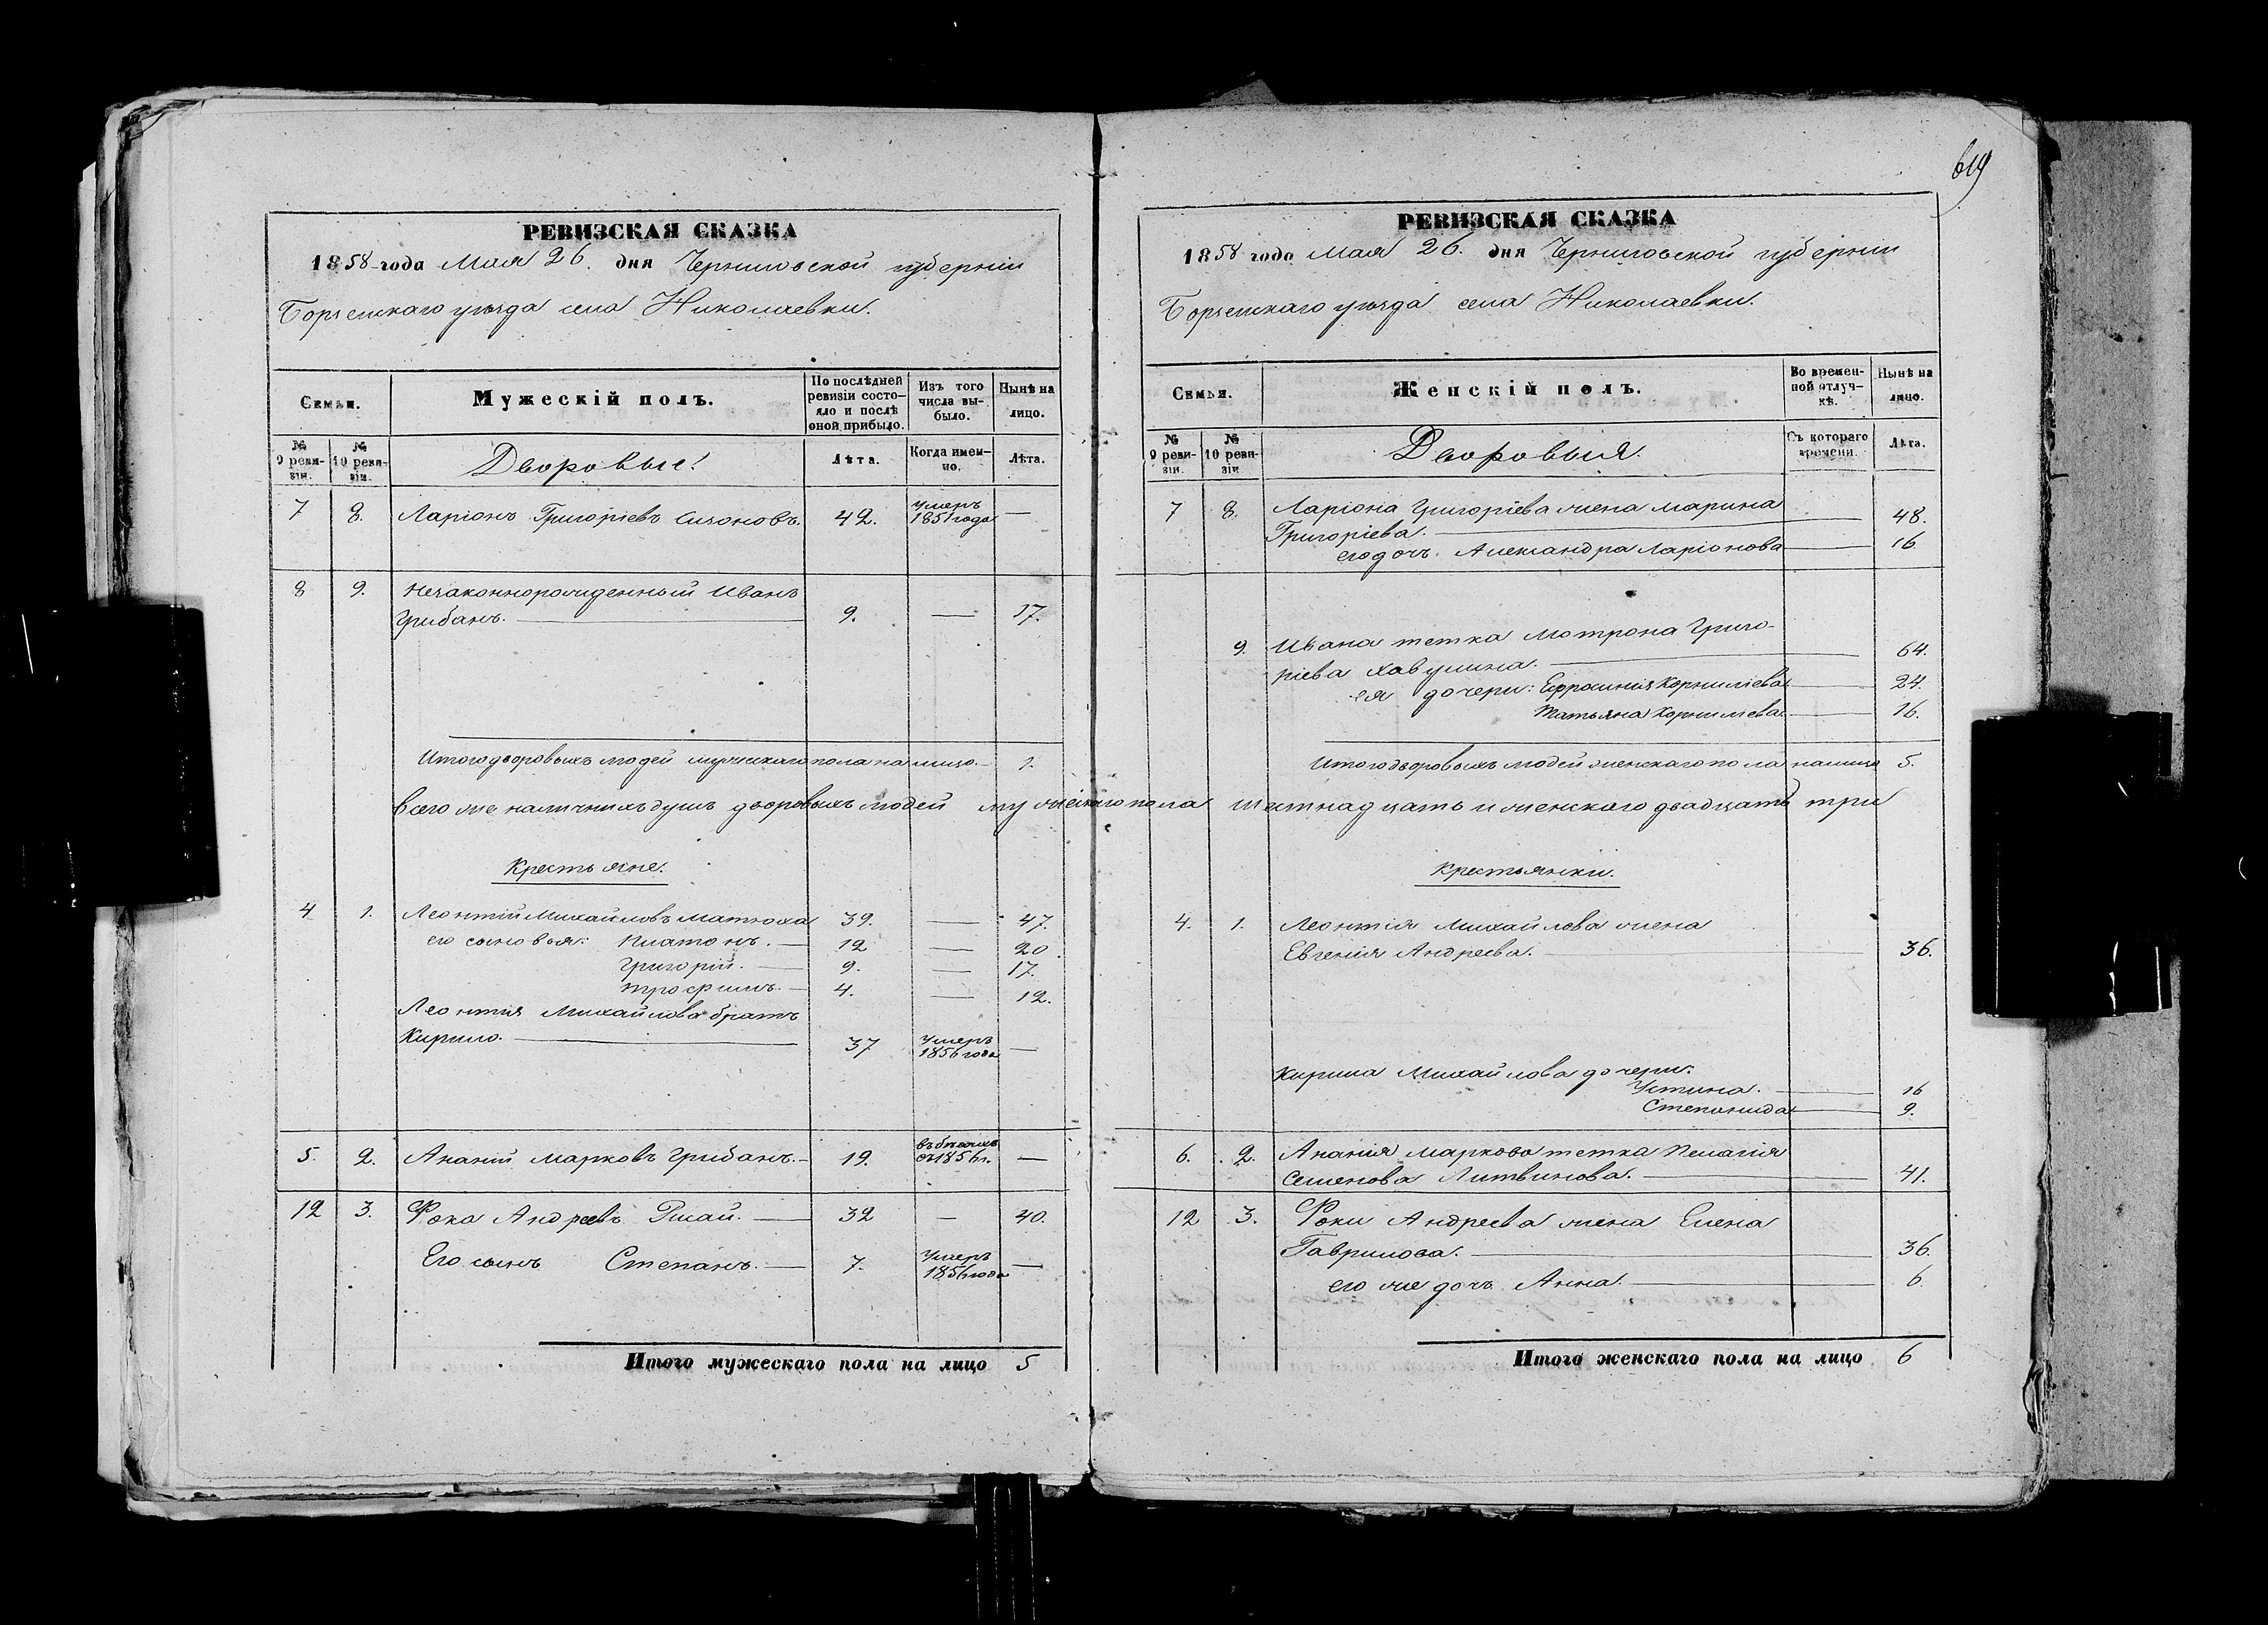 619
РЕВИЗСКАЯ СКАЗКА
1858 года Мая 26. дня Черниговской губерніи
Борзенскаго уезда села Николаевки.
Семьи.
Мужескій полъ.
По послѣдней ревизіи состо-
яло и послѣ оной прибыло.
Изъ того числа вы-
было.
Нынѣ на лицо.
№ 9 реви-
зіи.
№ 10 реви-
зіи.
Дворовые!
Лѣта.
Когда имен-
но.
Лѣта.
7 8. Ларіонъ Григоріевъ 42. умеръ 1851 года —
8 9. Незаконнорожденный Иванъ
Грибанъ. — 9. — 17.
Итого дворовыхъ людей мужескаго пола на лицо. 1.
Всего же наличныхъ душъ дворовыхъ людей мужескаго пола шестнадцать и женскаго двадцать три
Крестьяне.
4 1. Леонтій Михайловъ Матюха 39. — 47.
его сыновья: Платонъ. — 12 — 20.
Григорій. — 9. — 17.
Трофимъ. — 4. — 12.
Леонтія Михайлова братъ
Кирило. — 37 умеръ 1856 года —
5. 2. Ананій Марковъ Грибанъ. — 19. въ бегахъ съ 1856 г. —
12 3. Фока Андреевъ — 32 — 40.
Его сынъ Степанъ. — 7. умеръ 1856 года —
Итого мужескаго пола на лицо 5
РЕВИЗСКАЯ СКАЗКА
1858 года Мая 26. дня Черниговской губерніи
Борзенскаго уезда села Николаевки.
Семьи.
Женскій полъ.
Во времен-
ной отлуч-
кѣ.
Нынѣ на лицо.
№ 9 реви-
зіи.
№ 10 реви-
зіи.
Дворовыя.
Съ котораго времени.
Лѣта.
7 8. Ларіона Григоріева жена Марина
Григоріева. — 48.
его дочь Александра Ларіонова — 16.
9. Ивана тетка Мотрона Григо-
ріева — 64.
ея дочери: Ефросинія Корниліева — 24.
Татьяна Корниліева — 16.
Итого дворовыхъ людей женскаго пола на лицо 5.
Крестьянки.
4. 1. Леонтія Михайлова жена
Евгенія Андреева. — 36.
Кирила Михайлова дочери:
Устина. — 16
Степанида — 9.
6. 2. Ананія Маркова тетка Пелагія
Семенова Литвинова. — 41.
12 3. Фоки Андреева жена Елена
Гаврилова. — 36.
его же дочь Анна. — 6.
Итого женскаго пола на лицо 6